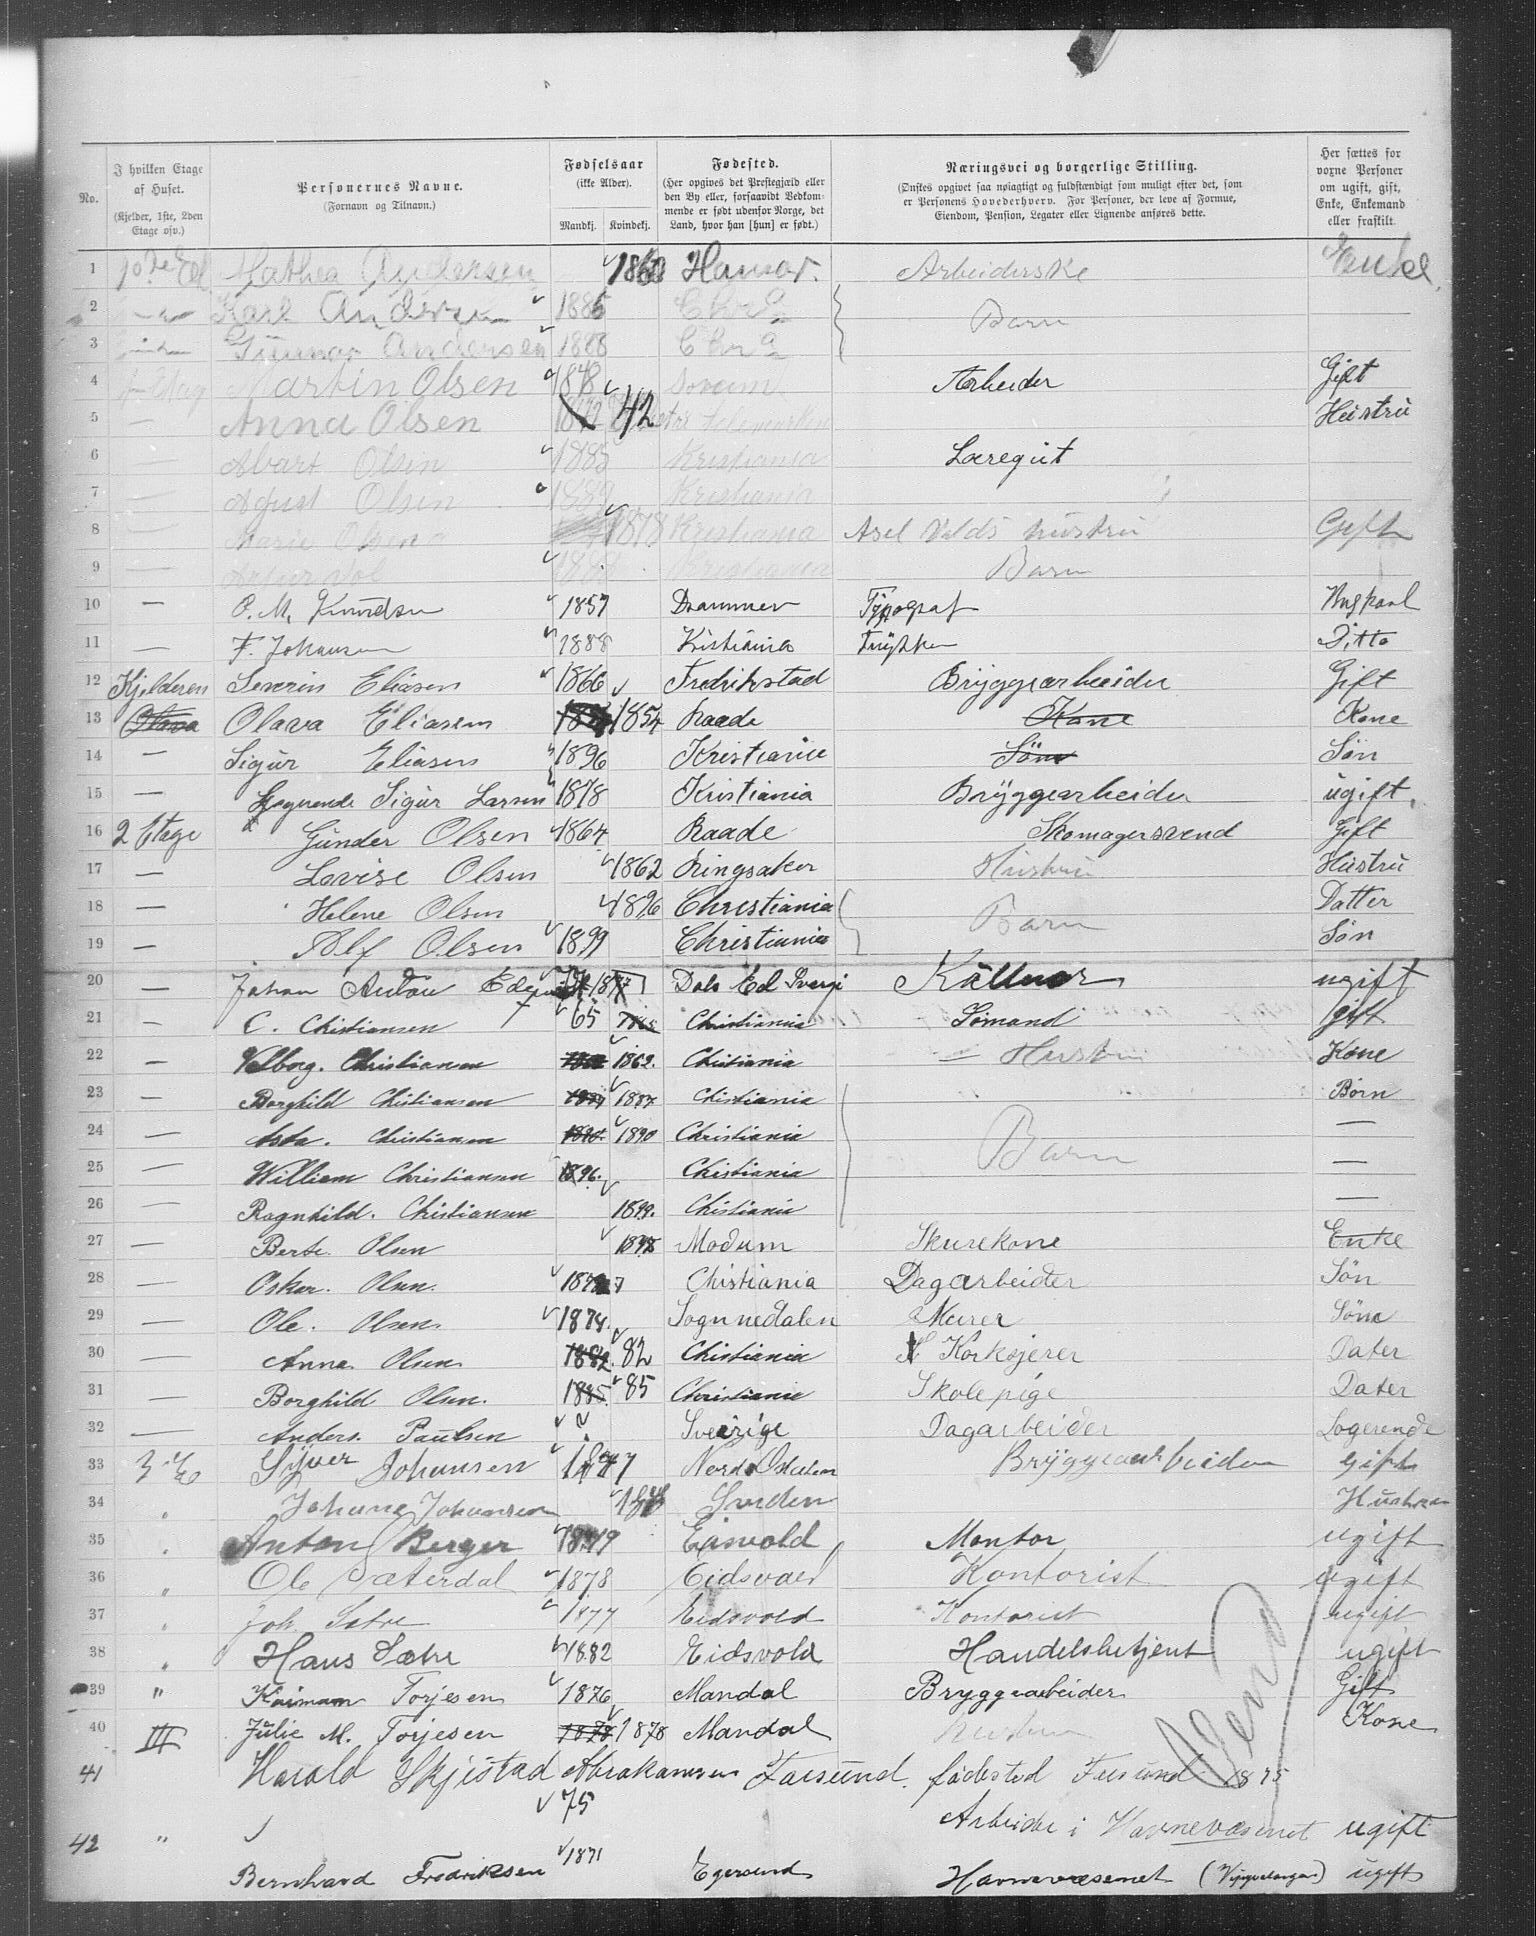 No.
I hvilken Etage af Huset. (Kjelder, 1ste, 2den Etage osv.)
Personernes Navne. (Fornavn og Tilnavn.)
Fødselsaar (ikke Alder). Mandkj. Kvindekj.
Fødested. (Her opgives det Prestegjæld eller den By eller, forsaavidt Bedkommende er født udenfor Norge, det Land, hvor han [hun] er født.)
Næringsvei og borgerlige Stilling. (Ønstes opgivet saa nøiagtigt og fuldstændigt som muligt efter det, som er Personens Hovederhverv. For Personer, der leve af Formue, Eiendom, Pension, Legater eller Lignende anføres dette.
Her sættes for voxne Personer om ugift, gift, Enke, Enkemand eller fraskilt.
1 Mathea Andersen 1860 Hamar. Arbeiderske Enke
2 Karl Andersen 1885 Chra Barn
3 Gunnar Andersen 1888 Chra
4 Martin Olsen 1848 Arbeider Gift
5 Anna Olsen 42 Hustru
6 Olsen 1885 Kristiania Læregut
7 Olsen Kristiania
8 Marie Olsen 1878 Kristiania Hustru Gift
9 Kristiania Barn
10 — O. M. Knudsen 1857 Drammen Typograf
11 — F. Johansen 1888 Kristiania Ditto
12 Kjelderen Severin Eliasen 1866 Fredrikstad Bryggearbeider Gift
13 Olava Olava Eliasen 1854 Raade Kone Kone
14 — Sigur Eliasen 1896 Kristiania Søn Søn
15 — Logerende Sigur Larsen 1878 Kristiania Bryggearbeider ugift
16 2 Etage Gunder Olsen 1864 Raade Skomagersvend Gift
17 — Lovise Olsen 1862 Ringsaker Hustru Hustru
18 — Helene Olsen 1896 Christiania Barn Datter
19 — Alf Olsen 1899 Christiania Søn
20 — Johan Anton Dals Ed Sverge Källnor ugift
21 — C. Christiansen 65 Christiania Sømand gift
22 — Valborg. Christiansen 1862. Christiania — Hustru Kone
23 — Borghild Christiansen 1887 Christiania Børn
24 — Asta. Christiansen 1890 Christiania Barn —
25 — William Christiansen 1896. Christiania —
26 — Ragnhild. Christiansen 1899. Christiania —
27 — Berte. Olsen 1848 Modum Skurekone Enke
28 — Oskar. Olsen. Christiania Dagarbeider Søn
29 — Ole. Olsen. 1874. Sognnedalen Murer Søn
30 — Anna Olsen 1882 82 Christiania Korkskjerer Dater
31 — Borghild Olsen. 1885 85 Christiania Skolepige Dater
32 — Anders. Paulsen ? Sveirige Dagarbeider Logerende
33 3 E Syver Johansen 1847 Bryggearbeider gift
34 " Johanne Johansen Hustru
35 " Anton Berger Eisvold Montør ugift
36 " Ole Sæterdal 1878 Eidsvold Kontorist ugift
37 " Joh. Sætre 1877 Eidsvold Kontorist ugift
38 " Hans Sætre 1882 Eidsvold Handelsbetjent ugift
39 " Torjesen 1876 Mandal Bryggearbeider Gift
40 III Julie M. Torjesen 1878 1878 Mandal Hustru Kone
41 Harald Skjistad Abrahamsen Farsund. fødested Farsund 1875
75 Arbeider i Havnevæsenet ugift
42 " Bernhard Fredriksen 1871 Egersund Havnevæsenet ugift